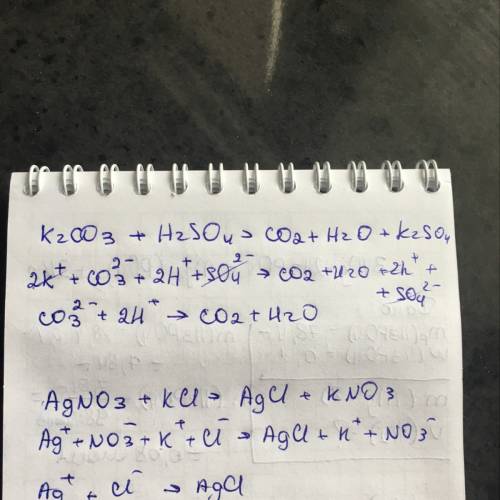 K2CO3 + H2SO4 → CO2 + H2O + K2SO4
2K⁺ + CO3²⁻ + 2H⁺ + SO4²⁻ → CO2 + H2O + 2K⁺ +
+ SO4²⁻
CO3²⁻ + 2H⁺ → CO2 + H2O
AgNO3 + KCl → AgCl + KNO3
Ag⁺ + NO3⁻ + K⁺ + Cl⁻ → AgCl + K⁺ + NO3⁻
Ag⁺ + Cl⁻ → AgCl